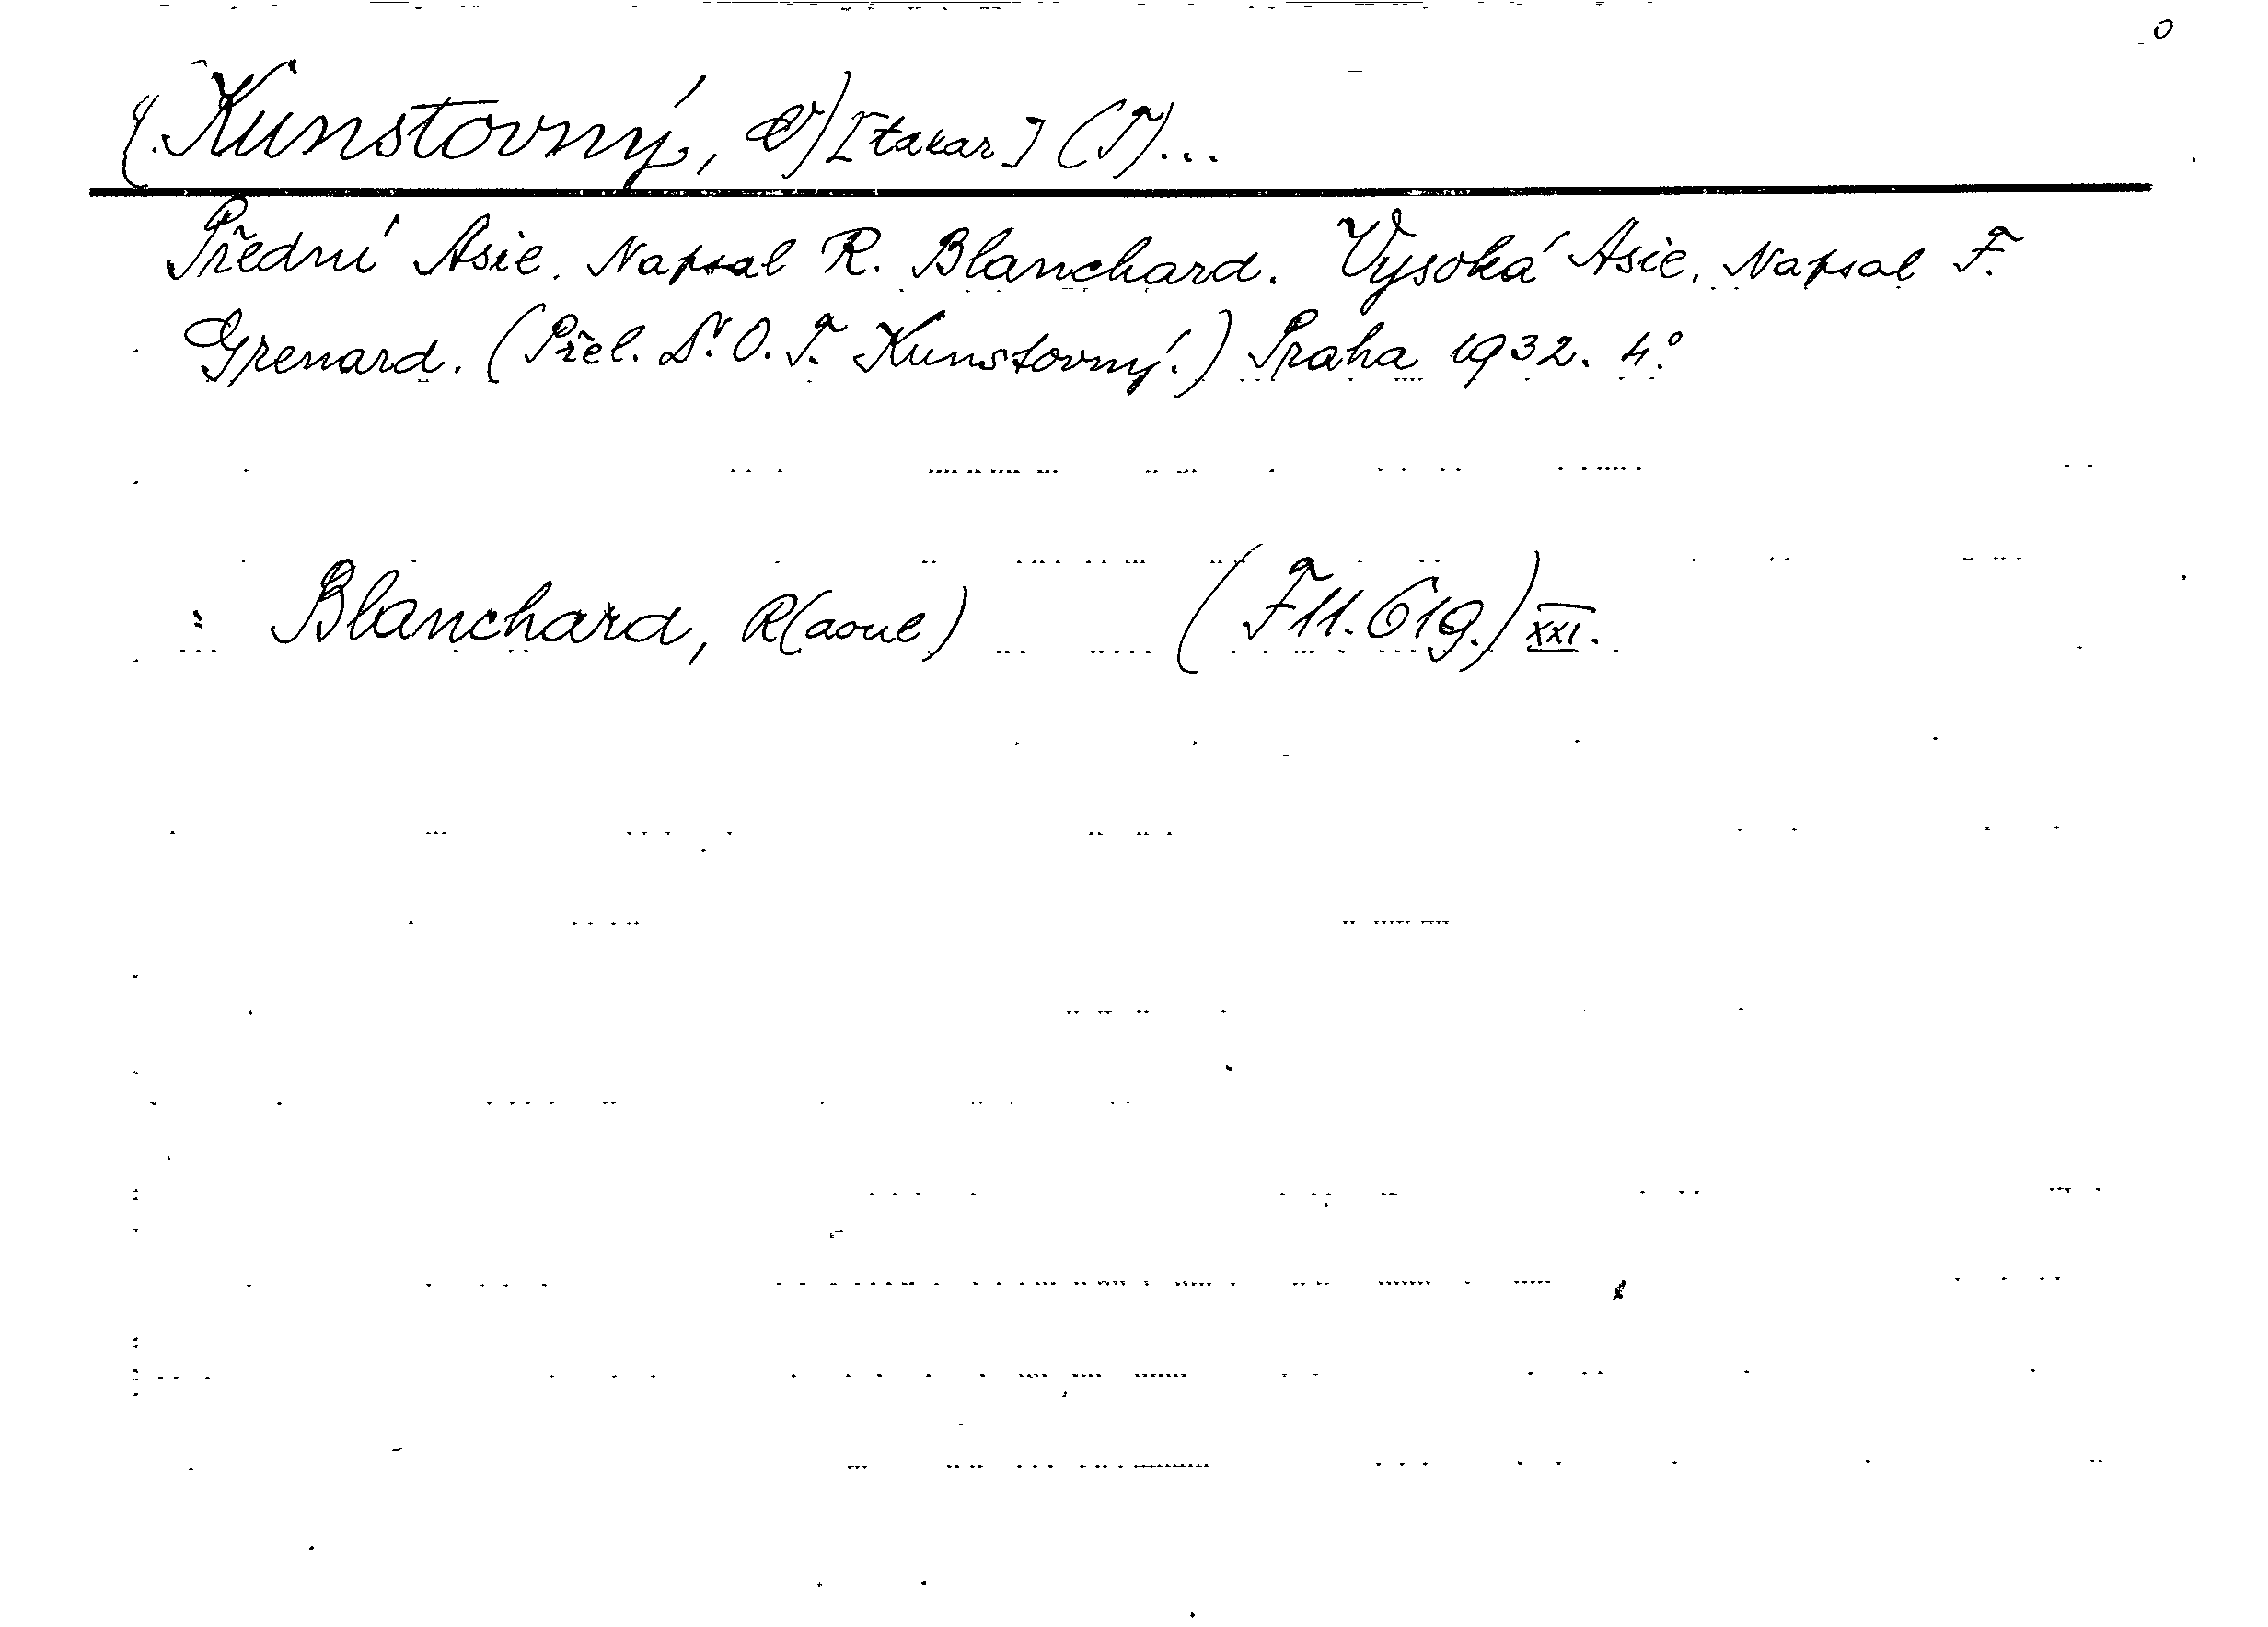 (Kunstovný, O)[takar] (T)...
Přední Asie. Napsal R. Blanchard. Vysoká Asie. Napsal F.
Grenard. (Přel. Dr. O. T. Kunstovný.) Praha 1932. 4°
: Blanchard, R(aoul) (F11.619.) XXI.